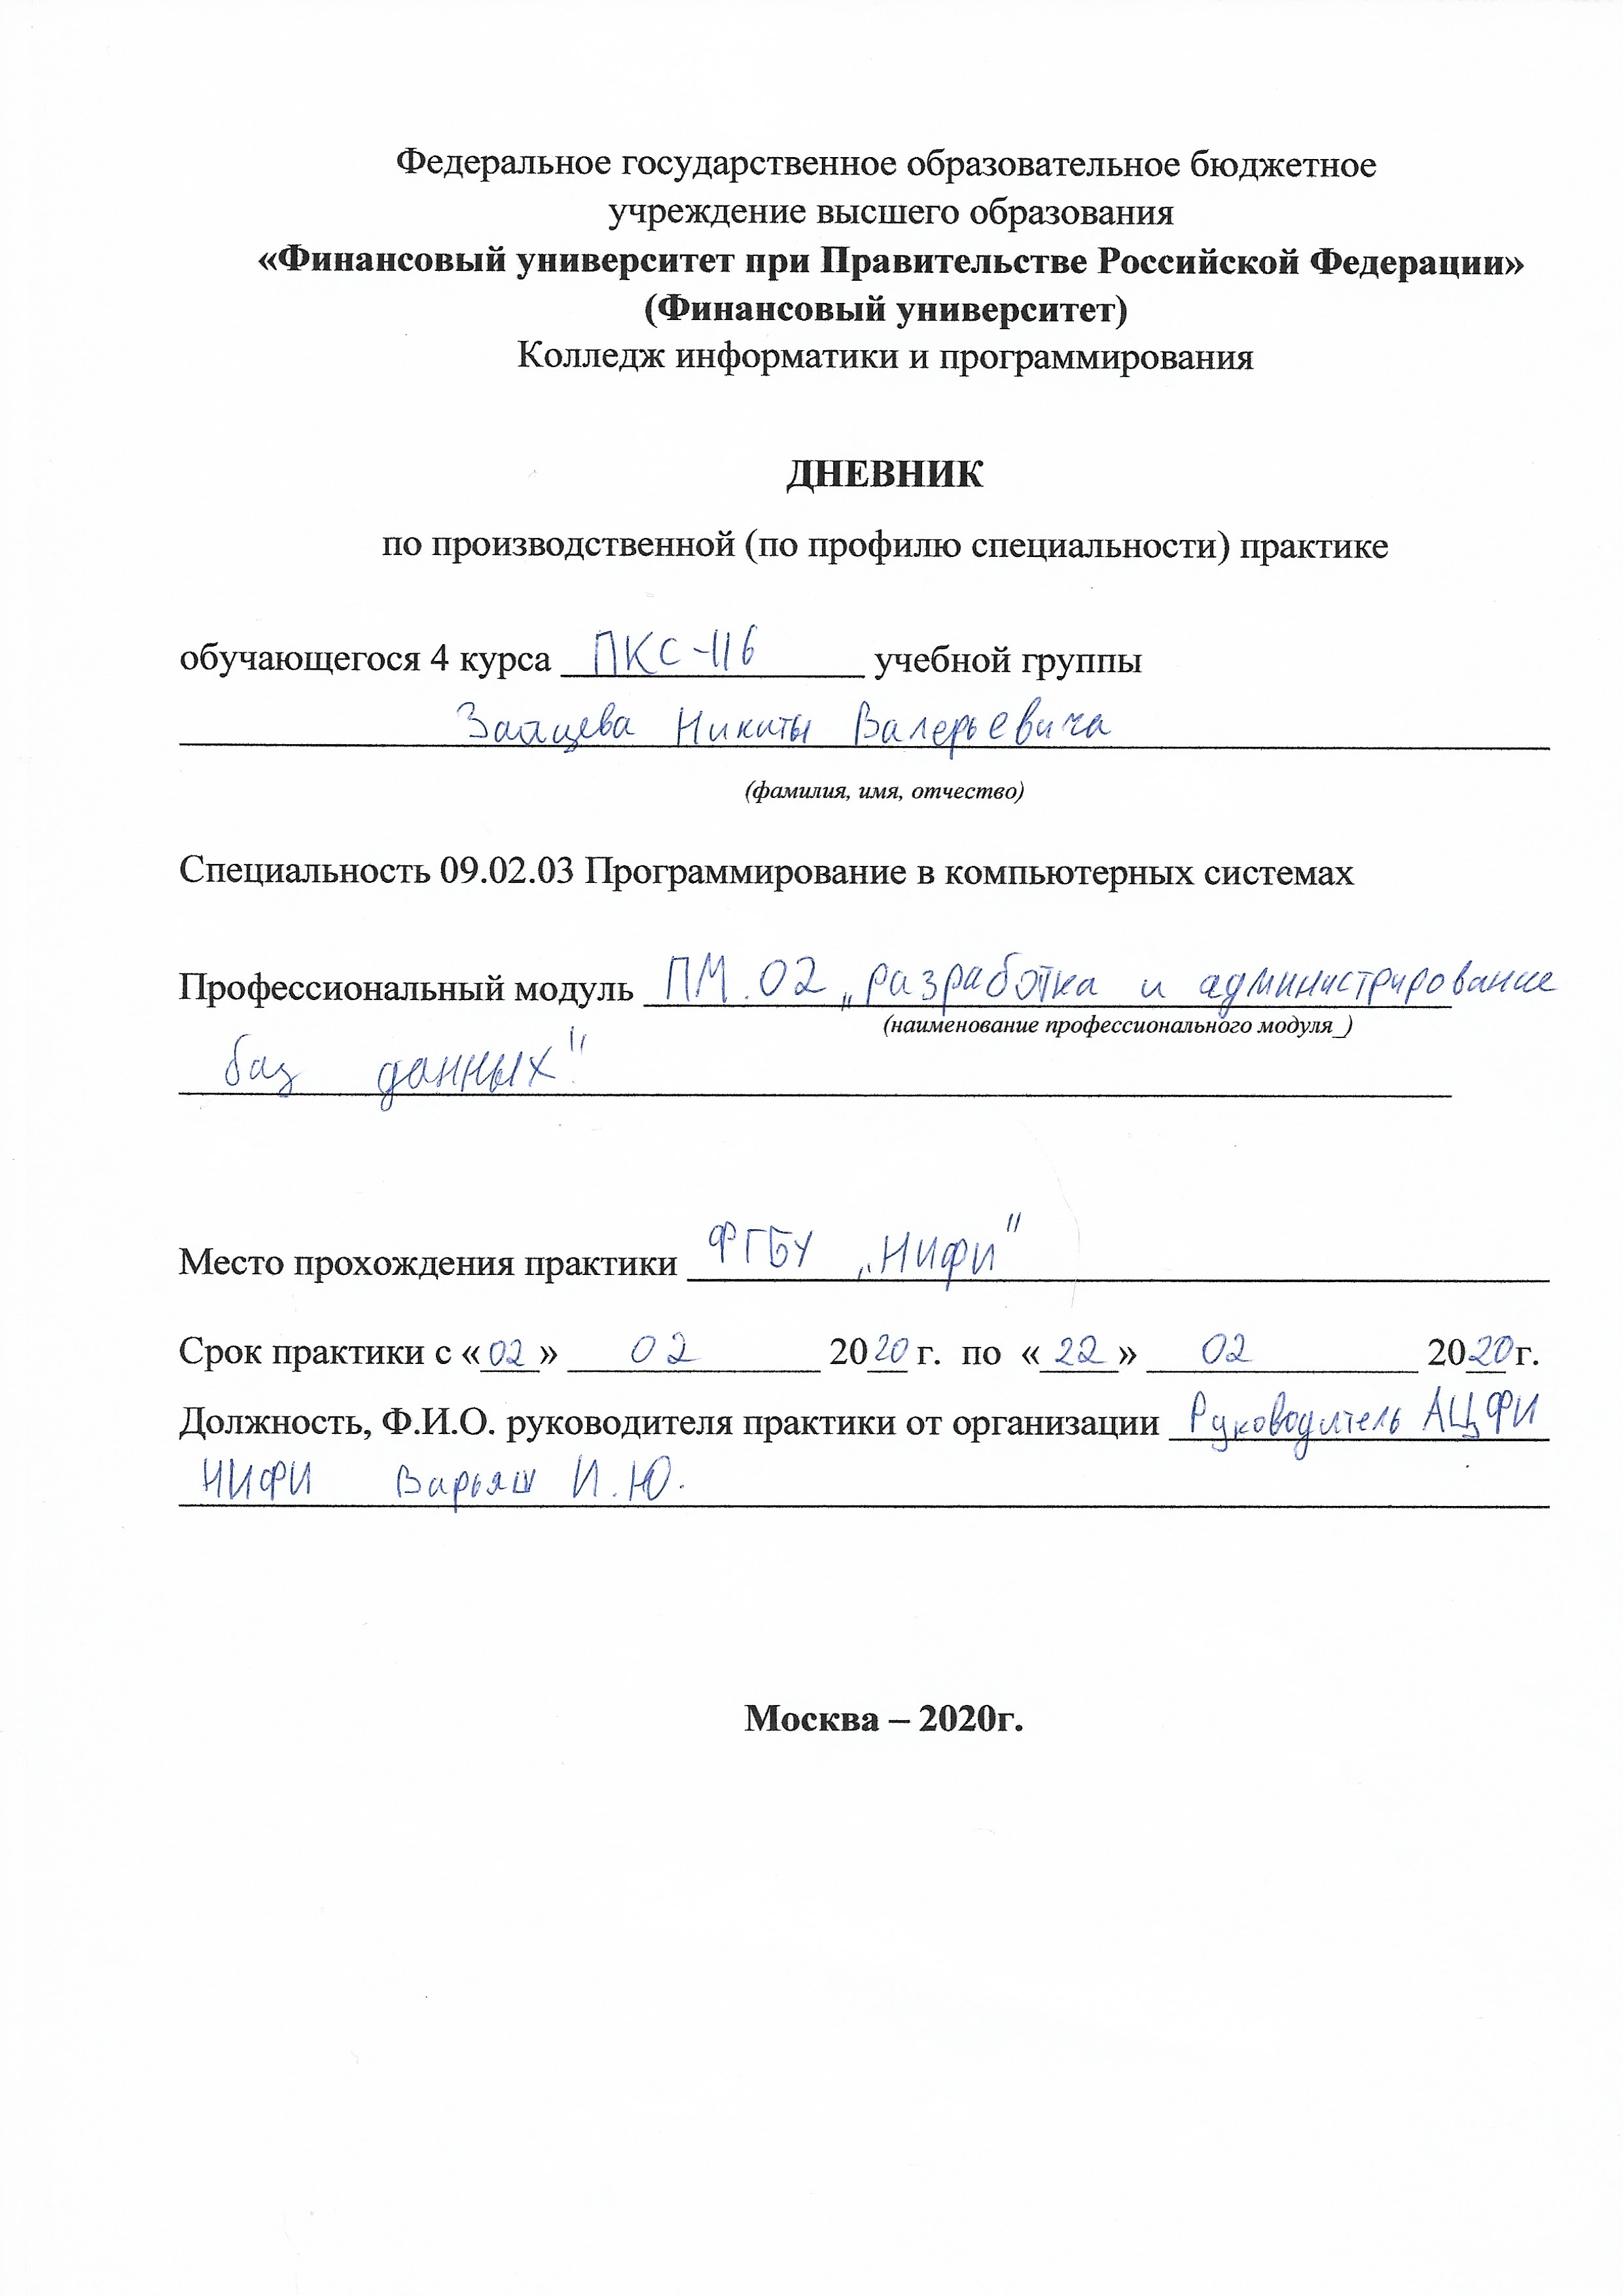 Федеральное государственное образовательное бюджетное
учреждение высшего образования
«Финансовый университет при Правительстве Российской Федерации»
(Финансовый университет)
Колледж информатики и программирования
ДНЕВНИК
по производственной (по профилю специальности) практике
обучающегося 4 курса ПКС-116 учебной группы
Зайцева Никиты Валерьевича
(фамилия, имя, отчество)
Специальность 09.02.03 Программирование в компьютерных системах
Профессиональный модуль ПМ.02 „разработка и администрирование
(наименование профессионального модуля_)
баз данных"
Место прохождения практики ФГБУ „НИФИ"
Срок практики с «02» 02 2020 г. по «22» 02 2020г.
Должность, Ф.И.О. руководителя практики от организации Руководитель АЦФИ
НИФИ Варьяш И.Ю.
Москва – 2020г.